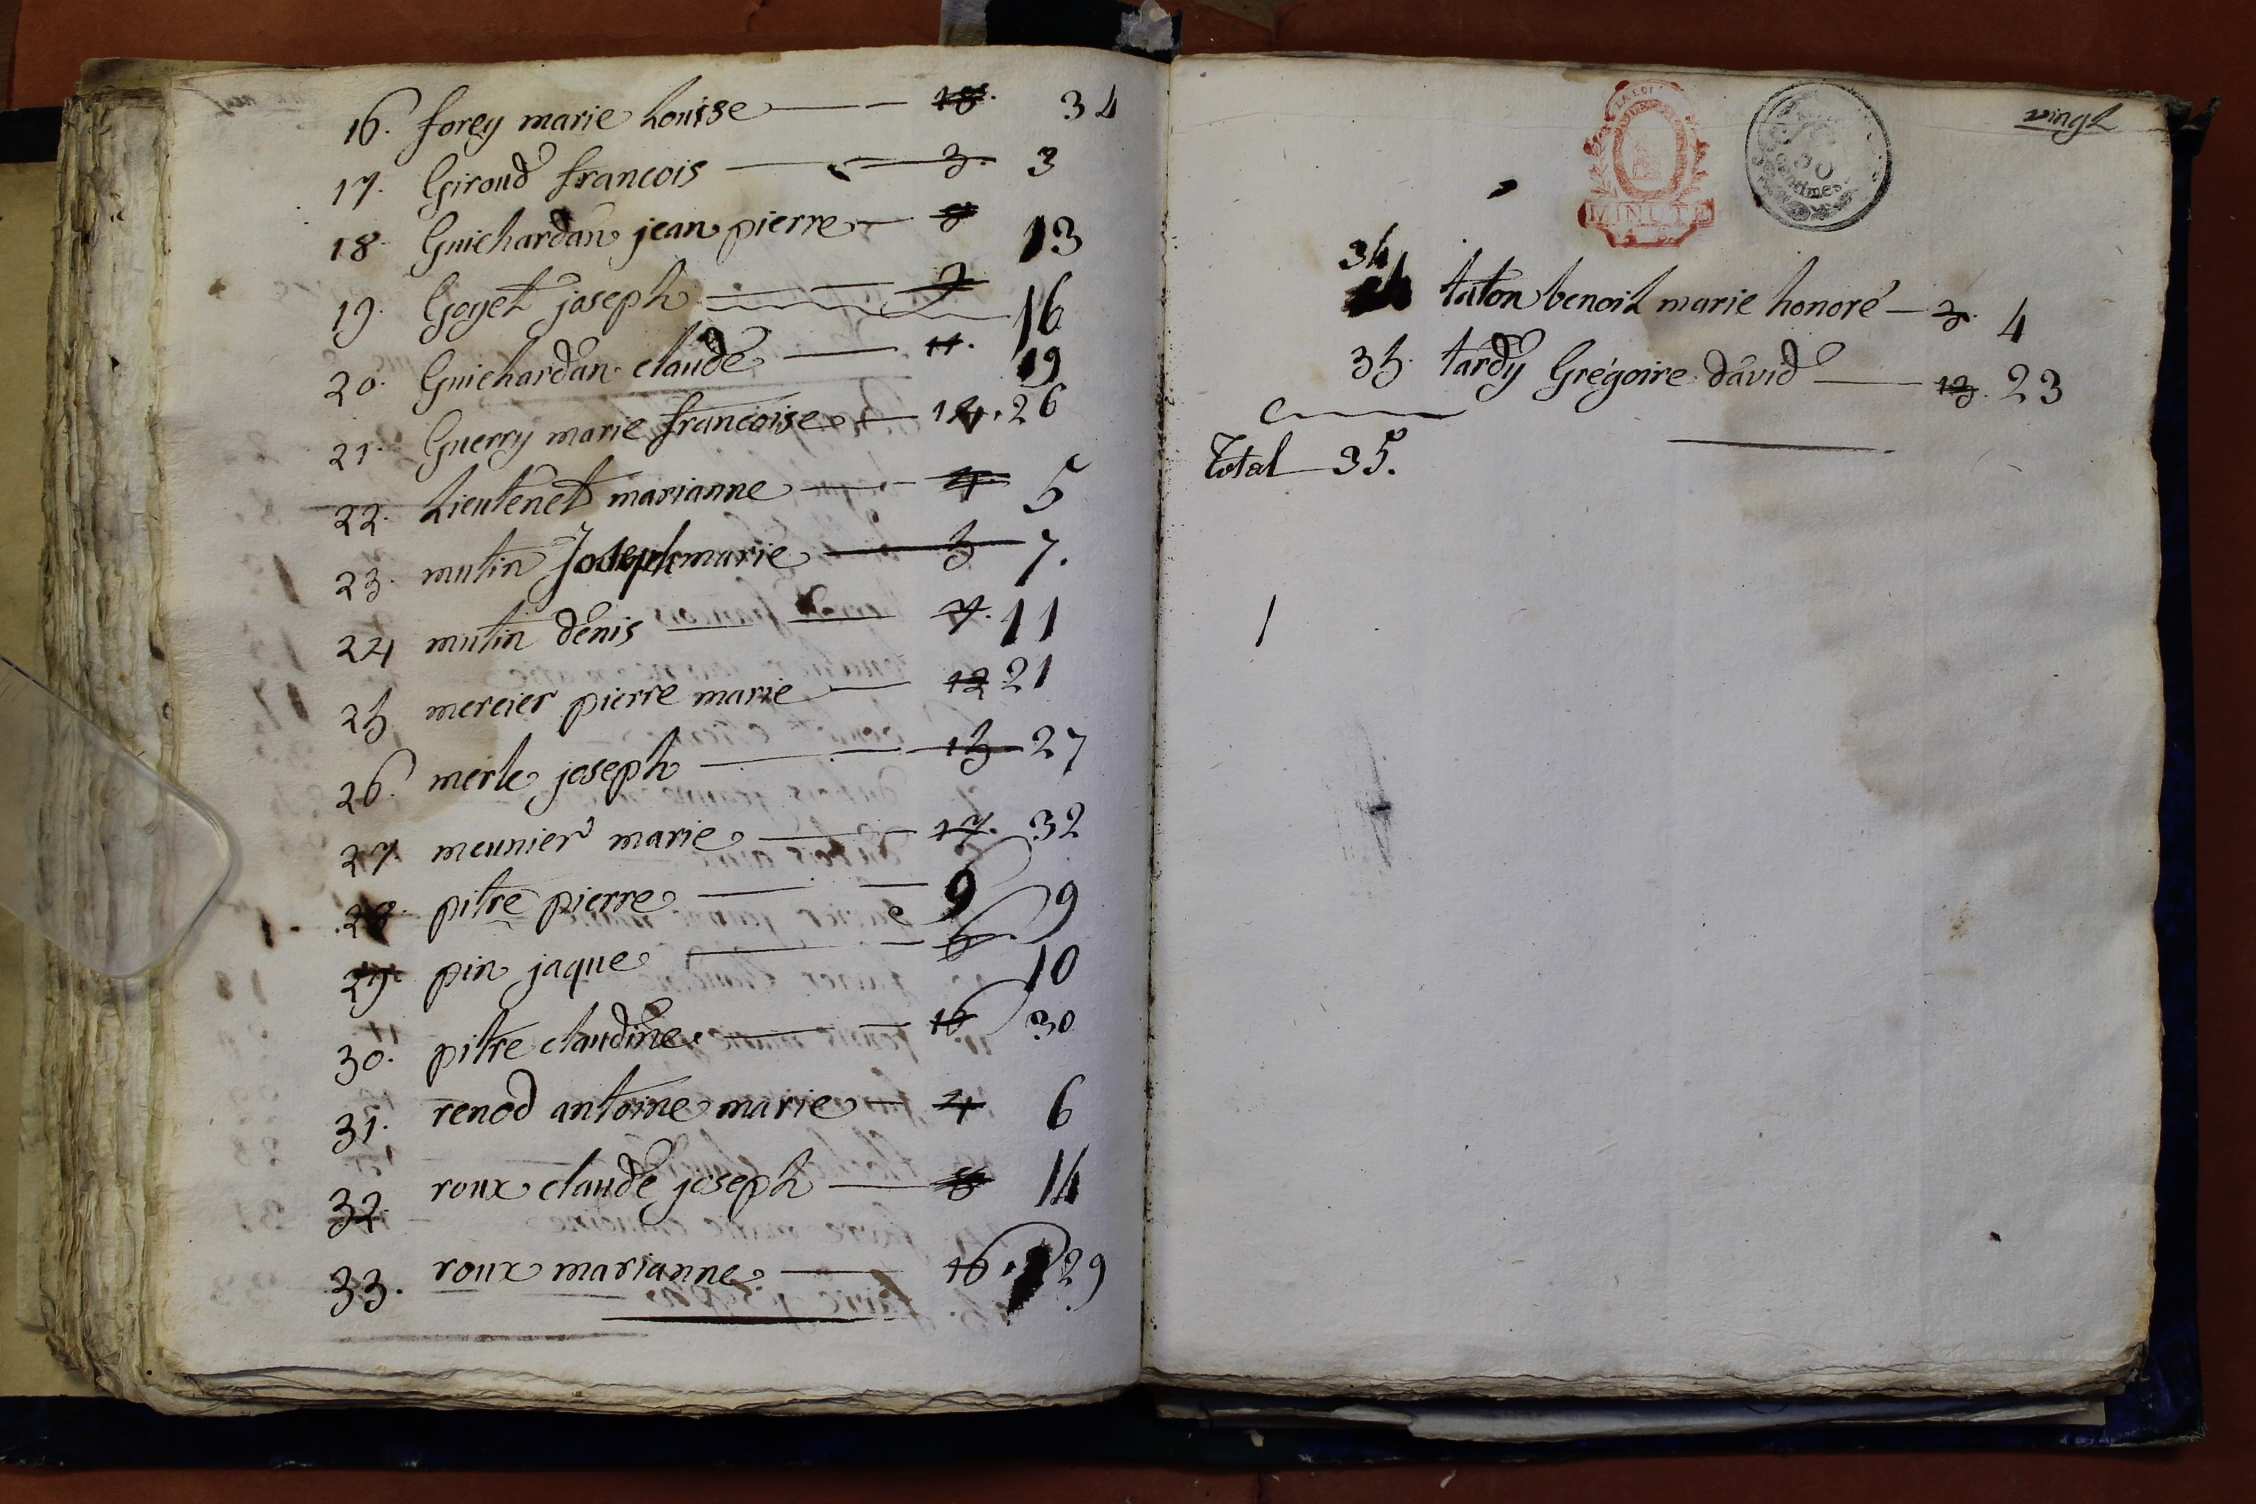 16. forey marie Louise — 18. 34
17. Giroud francois — 3. 3
18. Guichardan jean pierre — 8 13
19. Goyet joseph — 9 16
20. Guichardan claude — 11. 19
21. Guerry marie francoise — 14. 26
22. Lieutenet marianne — 4 5
23. mutin Joseph marie — 5 7.
24 mutin denis — 7. 11
25 mercier pierre marie — 12 21
26. merle joseph — 15 27
27 meunier marie — 17. 32
28. pitre pierre — 9 9
29. pin jaque — 6. 10
30. pitre claudine — 16 30
31. renod antoine marie — 4 6
32. roux claude joseph — 8 14
33. roux marianne — 16. 29
vingt
LA LOI
MINUTE
centimes
34
taton benoit marie honoré — 3. 4
35. tardy Grégoire david — 13. 23
Total 35.